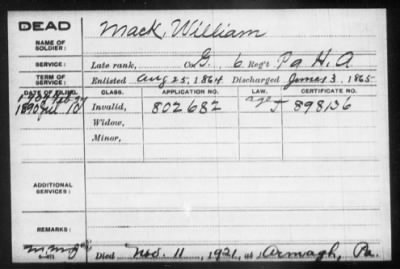 DEAD
NAME OF SOLDIER: Mack, William
SERVICE: Late rank, Co. G., 6 Reg't Pa H. A.
TERM OF SERVICE: Enlisted Aug 25, 1864 Discharged June 13, 1865
DATE OF FILING. CLASS. APPLICATION NO. LAW. CERTIFICATE NO.
1907 Feb
1890 Jul 10 Invalid, 802682 898136
Widow,
Minor,
ADDITIONAL SERVICES:
REMARKS:
Died Nov. 11, 1921, at Armagh, Pa.